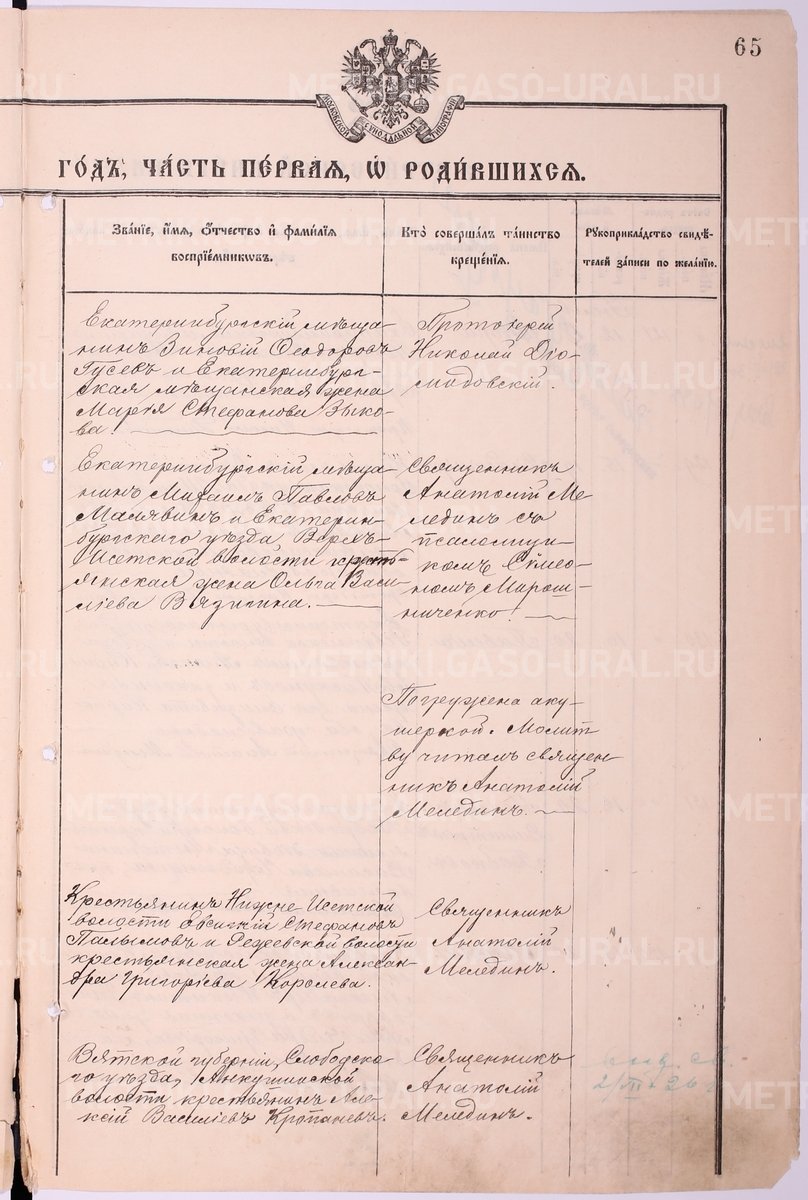 65
МОСКОВСКОЙ СѴНОДАЛЬНОЙ ТИПОГРАФІИ
ГО́ДЪ, ЧА́СТЬ ПЕ́РВАЯ, Ѡ҆ РОДИ́ВШИХСЯ.
Зва́нїе, и҆́мя, ѻ҆́тчество и҆ фами́лїя
воспрїе́мникѡвъ.
Кто̀ соверша́лъ та́инство
креще́нїя.
Рꙋкоприкла́дство свидѣ́-
телей за́писи по жела́нїю.
Екатеринбургскій мѣща-
нинъ Зиновій Ѳеодоровъ
Гусевъ и Екатеринбург-
ская мѣщанская жена
Марія Стефанова Зыко-
ва.
Протоіерей
Николай Діо-
мидовскій.
Екатеринбургскій мѣща-
нинъ Михаилъ Павловъ
Малявинъ и Екатерин-
бургскаго уѣзда Верхъ-
Исетской волости кресть-
янская жена Ольга Васи-
ліева Вязигина.
Священникъ
Анатолій Ме-
лединъ съ
псаломщи-
комъ Сѵмео-
номъ Мирош-
ниченко.
Погружена аку-
шеркой. Молит
ву читалъ священ-
никъ Анатолій
Мелединъ.
Крестьянинъ Нижне Исетской
волости Евсигній Стефановъ
Палымовъ и Режевской волости
крестьянская жена Алексан-
дра Григоріева Королева.
Священникъ
Анатолій
Мелединъ.
Вятской губерніи, Слободска-
го уѣзда, волости крестьянинъ Але-
ксій Василіевъ Кропачевъ.
Священникъ
Анатолій
Мелединъ.
METRIKI.GASO-URAL.RU